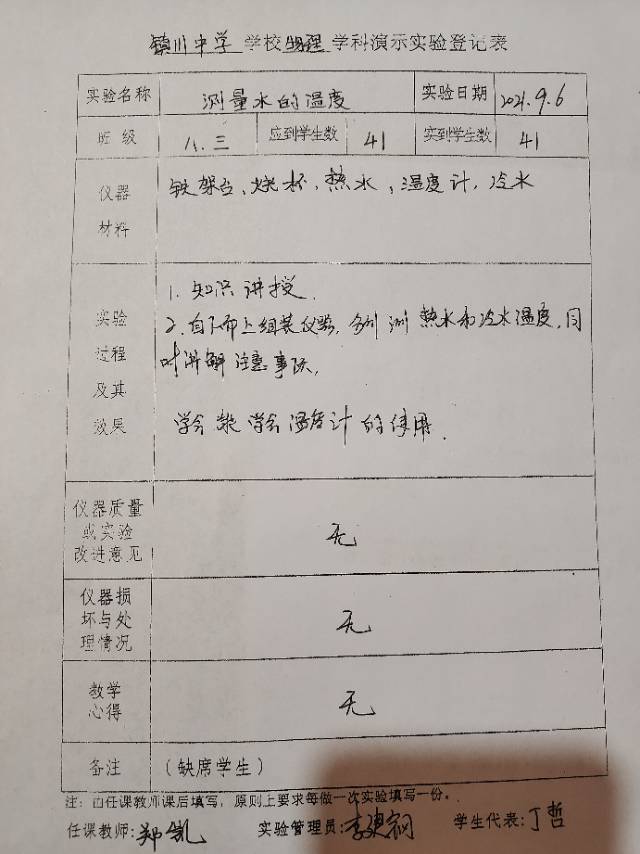 镇川中学 学校 物理 学科演示实验登记表
实验名称 测量水的温度 实验日期 2021.9.6
班 级 八.三 应到学生数 41 实到学生数 41
仪器 铁架台、烧杯、热水、温度计、冷水
材料
1. 知识讲授.
实验 2. 自下而上组装仪器, 分别测热水和冷水温度, 同
过程 时讲解注意事项.
及其
效果 学会 学会温度计的使用.
仪器质量
或实验
改进意见 无
仪器损
坏与处
理情况 无
教学
心得 无
备注 (缺席学生)
注: 由任课教师课后填写, 原则上要求每做一次实验填写一份。
任课教师: 郑凯 实验管理员: 李建钢 学生代表: 丁哲